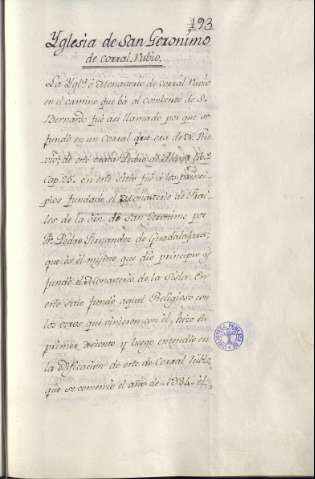 193
Yglesia de San Geronimo
de Corral Rubio.
La Ygl.ª ó Monasterio de Corral Rubio
en el camino que bá al Combento de S.
Bernardo fué asi llamado por que se
fundó en un Corral que era de
de este trata Pedro de Alcocer lib.º
Cap. 25. en este sitio fué á los princi-
pios fundado el Monasterio de Frai-
les de la orn. de San Geronimo por
Fr. Pedro Fernandez de Guadalajara,
que es el mismo que dió principio y
fundó el Monasterio de la Sisla. En
este sitio fundó aquel Religioso con
los otros que vinieron con él, hizo su
primer asiento y luego entendió en
la edificacion de este de Corral rubio,
que se comenzó el año de 1384. el